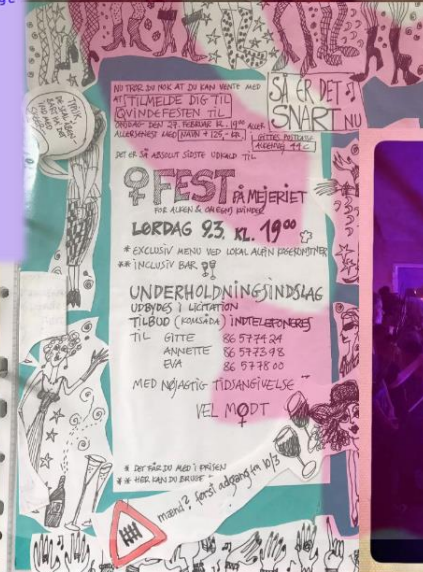 SÅ ER DET
SNART NU
NU TROR DU NOK AT DU KAN VENTE MED
AT TILMELDE DIG TIL
QVINDEFESTEN TIL
ONSDAG DEN 27. FEBRUAR KL. 19⁰⁰ ALLER
ALLERSENEST MED NAVN + 125,- KR. I GITTES POSTKASSE
44 C
DET ER SÅ ABSOLUT SIDSTE UDKALD TIL
♀FEST PÅ MEJERIET
FOR ALKEN & OMEGNS KVINDER
LØRDAG 9.3. KL. 19⁰⁰
* EXCLUSIV MENU VED LOKAL
** INCLUSIV BAR
UNDERHOLDNINGSINDSLAG
UDBYDES I LICITATION
TILBUD (KOMSÅDA) INDTELEFONERES
TIL GITTE 86 577424
ANNETTE 86 577398
EVA 86 577800
MED NØJAGTIG TIDSANGIVELSE
VEL MØDT
* DET FÅR DU MED I PRISEN
** HER KAN DU
mænd? først adgang den 10/3